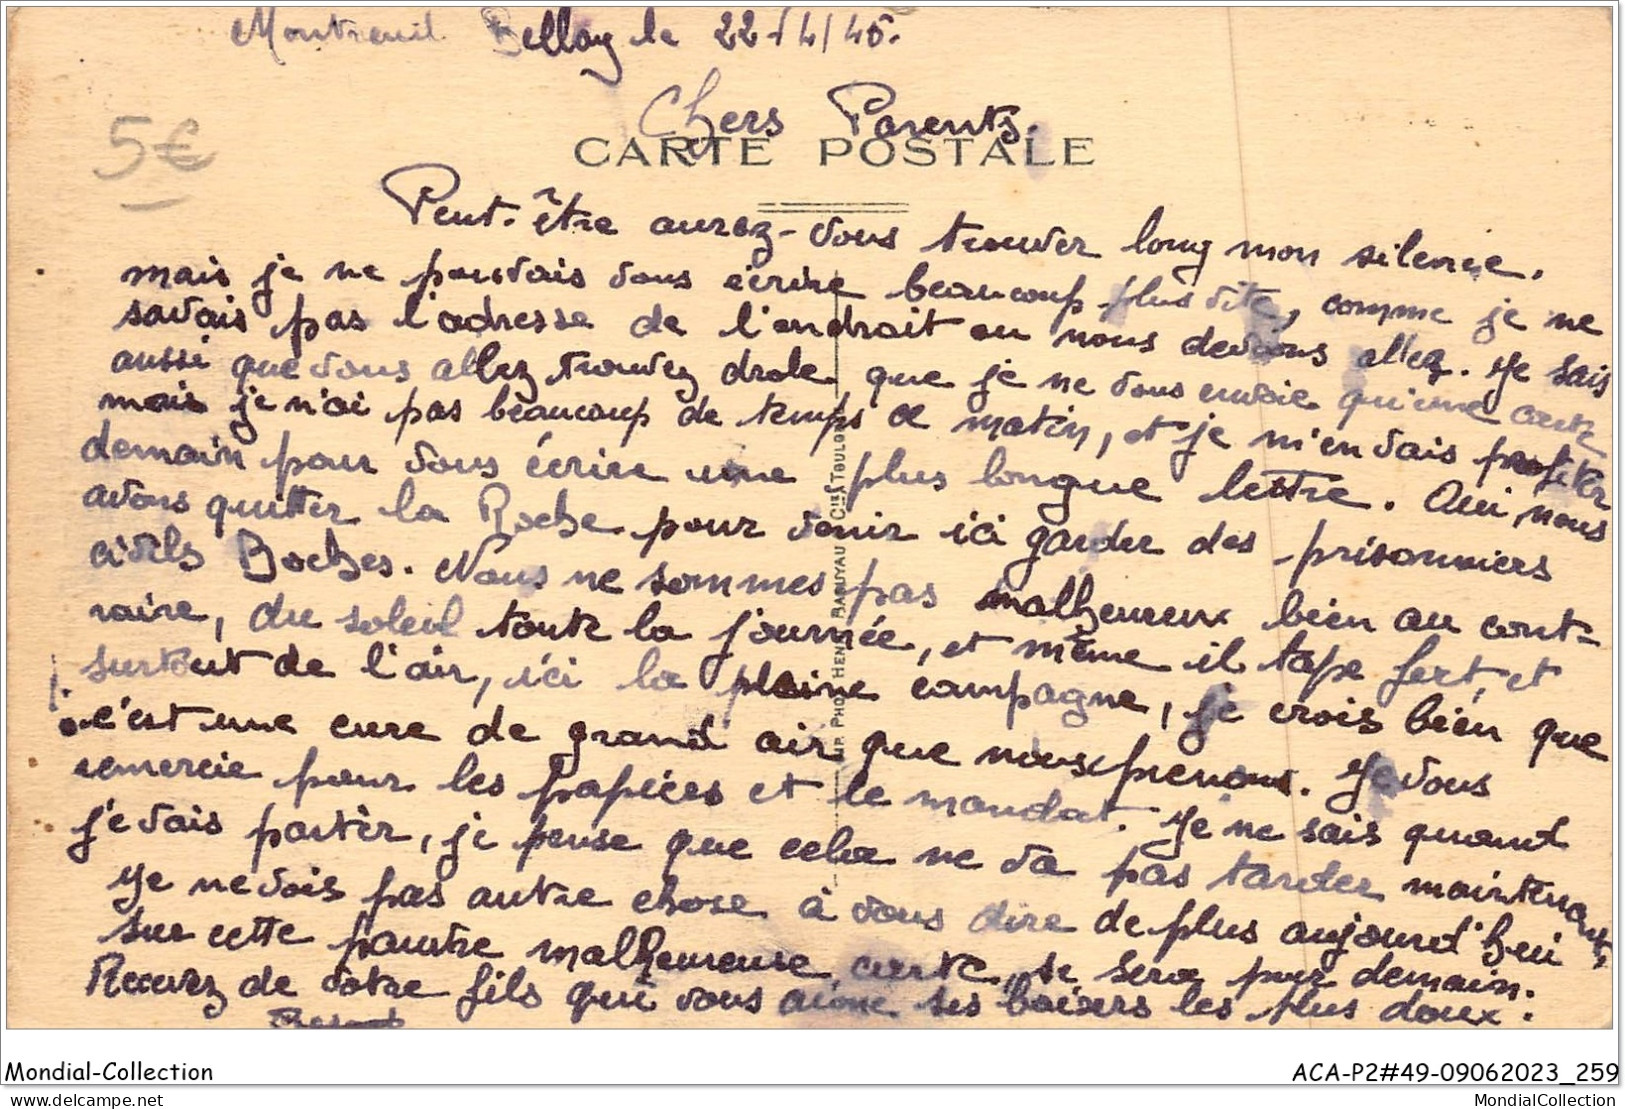 Montreuil Bellay le 22/4/45.
5€
Chers Parents.
CARTE POSTALE
Peut-être aurez-vous trouver long mon silence.
mais je ne pouvais vous écrire beaucoup plus vite, comme je ne
savais pas l'adresse de l'endroit ou nous devions allez. Je sais
aussi que vous allez trouvez drole que je ne vous envoie qu'une carte
mais je n'ai pas beaucoup de temps ce matin, et je m'en vais profiter
demain pour vous écrire une plus longue lettre. Oui nous
avons quitter la Roche pour venir ici garder des prisonniers
civils Boches. Nous ne sommes pas malheureux bien au cont-
raire, du soleil toute la journée, et même il tape fort, et
surtout de l'air, ici la pleine campagne, je crois bien que
c'est une cure de grand air que nous prenons. Je vous
remercie pour les papiers et le mandat. Je ne sais quand
je vais partir, je pense que cela ne va pas tarder maintenant.
Je ne vois pas autre chose à vous dire de plus aujourd'hui
sur cette pauvre malheureuse carte, se sera pour demain.
Recevez de votre fils qui vous aime ses baisers les plus doux.
IMP PHOT HENRI BAQUYAU CIE TOULOU
Mondial-Collection
ACA-P2#49-09062023_259
mondial-collection.delcampe.net
MondialCollection